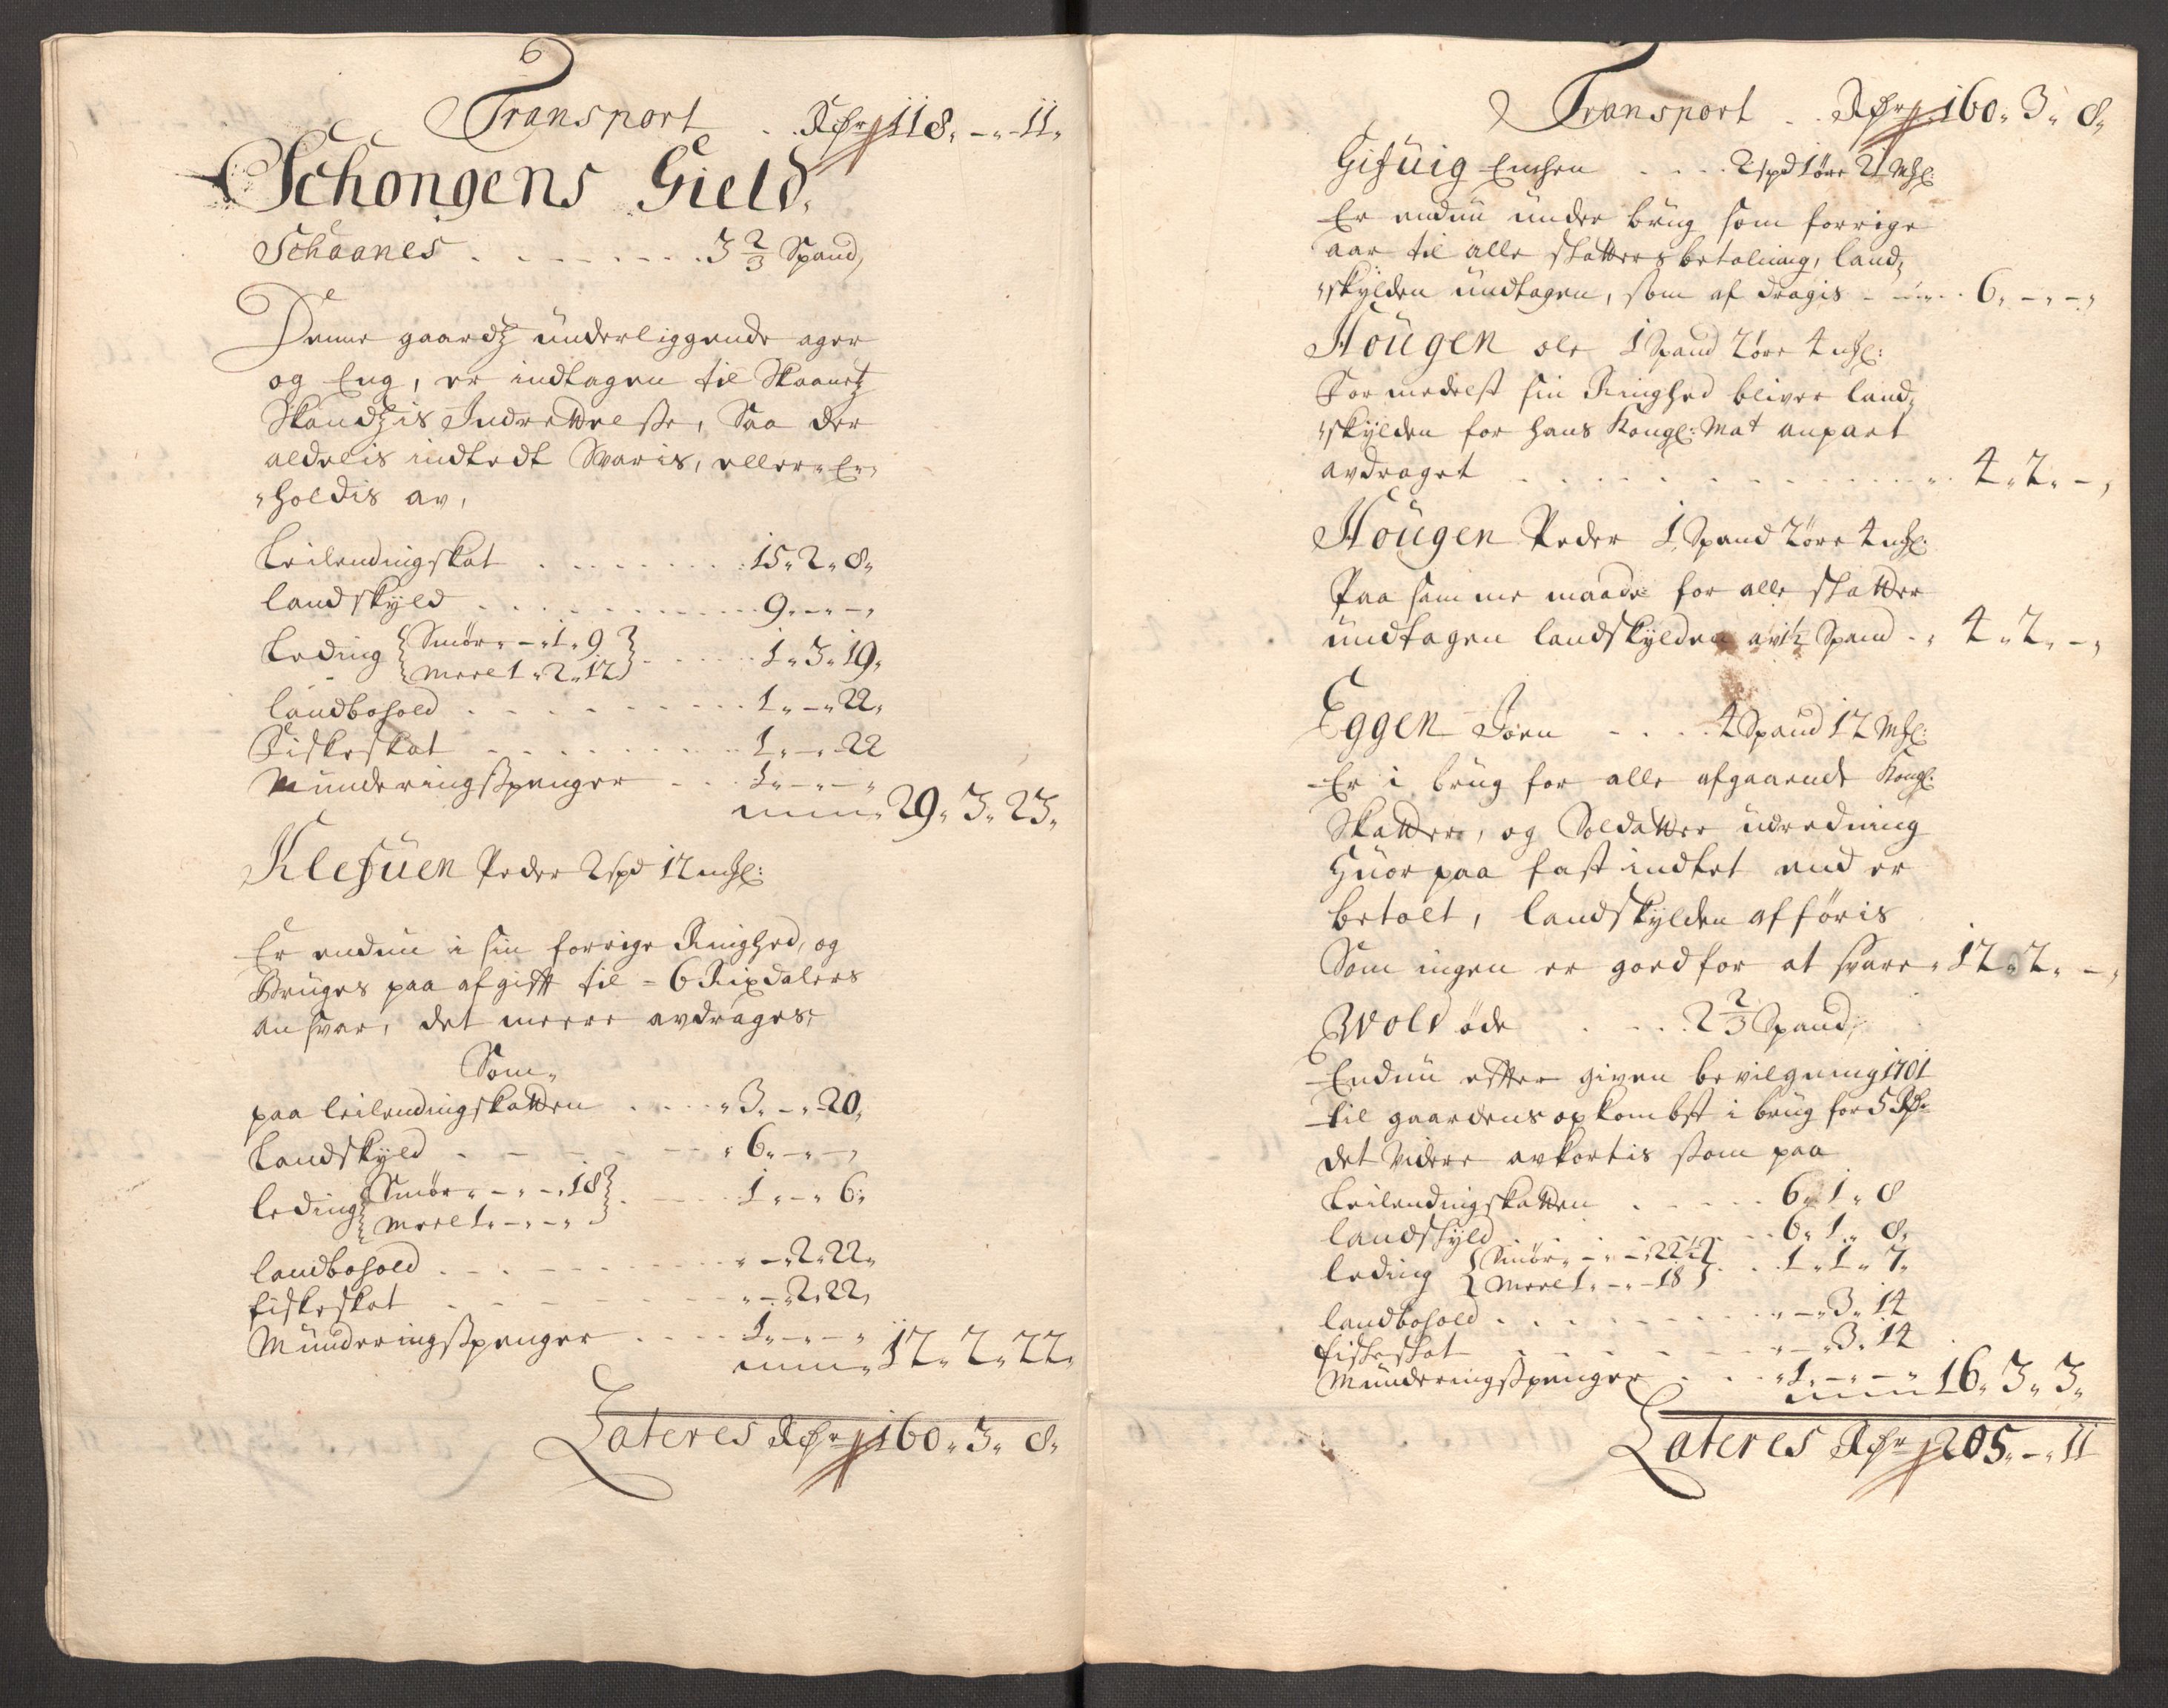 Transport . . Rdr 118. -. 11.
Schongens Gield.
Schaanes . . . . . . . . 3 2/3 Spand,
Denne gaardz underliggende ager
og Eng, er indtagen til Skaanetz
Skandzis Indrettelse, Saa der
aldelis indtedt Svaris, eller Er-
holdis av,
Leilendingskat . . . . . . . 15. 2. 8.
landskyld . . . . . . . . . . 9. -. -.
Leding { Smør. -. 1. 9 } . . . . . 1. 3. 19.
Meel 1. 2. 12
landbohold . . . . . . . . . 1. -. 22.
Fiskeskat . . . . . . . . 1. -. 22
Munderingspenger . . . 1. -. -.
29. 3. 23.
Klefuen Peder 2 spd 12 mkl:
Er endnu i sin forrige Ringhed, og
Bruges paa afgifft til = 6 Rixdalers
ansvar, det meere avdrages,
Som,
paa leilendingskatten . . . . 3. -. 20.
Landskyld . . . . . . . 6. -. -,
leding { Smør. -. -. 18 } . . . . 1. -. 6.
Meel 1. -. -.
landbohold . . . . . . . . . -. 2. 22.
fiskeskat . . . . . . . . -. 2. 22.
Munderingspenger . . . . 1. -. -.
12. 2. 22.
Lateres Rdr 160. 3. 8.
Transport . . Rdr 160. 3. 8.
Gifuig Enchen . . . . 2 spd 1 øre 21 Mkl:
Er endnu under brug som forrige
aar til alle skatters betalning, land-
skylden undtagen, som af dragis . . . . 6. -. -.
Hougen ole 1 Spand 2 øre 4 mkl:
Formedelst sin Ringhed bliver land-
skylden for hans Kongl: Mat anpart
avdraget . . . . . . . . . . . . 4. 2. -,
Hougen Peder 1 Spand 2 øre 4 mkl:
Paa samme maade for alle skatter
undtagen landskylden av 1½ Spand . 4. 2. -,
Eggen Jøen . . . . 4 Spand 12 Mkl:
Er i brug for alle afgaaende Kongl:
Skatter, og Soldatter udredning
Huorpaa fast indtet end er
betalt, landskylden afføris
Som ingen er goed for at svare. 12. 2. -,
Wold øde . . . . 2 2/3 Spand,
Endnu effter given bevilgning 1701
til gaardens opkombst i brug for 5 Rdr
det videre avkortis som paa
Leilendingskatten . . . . . 6. 1. 8
landskyld . . . . . . . . 6. 1. 8.
leding { Smør. -. -. 22½ } . . 1. 1. 7.
Meel 1. -. 18
landbohold . . . . . . . . . -. 3. 14
fiskeskat . . . . . . . . -. 3. 14
Munderingspenger . . . . 1. -. -.
16. 3. 3.
Lateres Rdr 205. -. 11